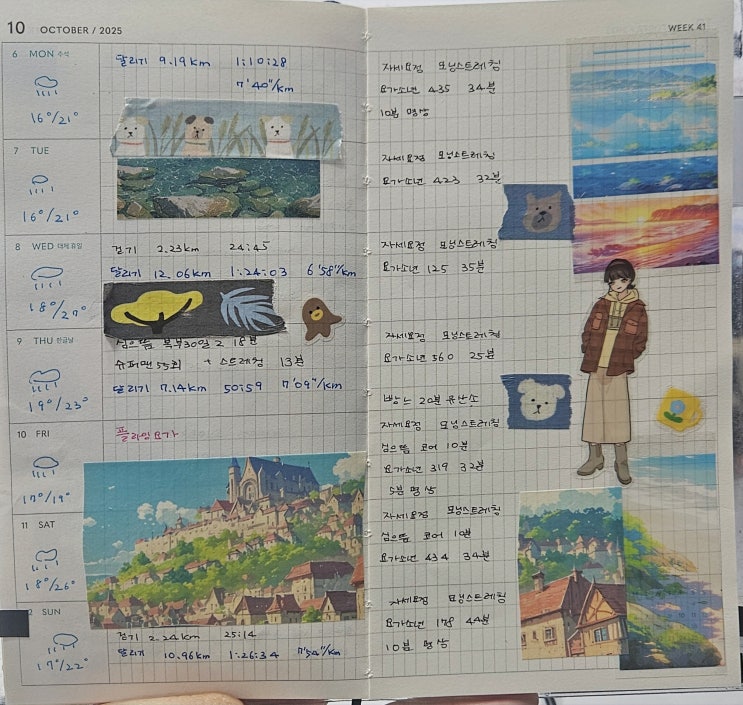 10 OCTOBER / 2025
6 MON 추석
16°/21°
달리기 9.19km 1:10:28
7'40"/km
7 TUE
16°/21°
8 WED 대체 휴일
18°/27°
걷기 2.23km 24:45
달리기 12.06km 1:24:03 6'58"/km
9 THU 한글날
19°/23°
심으뜸 복부30일 2 18분
슈퍼맨 55회 + 스트레칭 13분
달리기 7.14km 50:59 7'09"/km
10 FRI
17°/19°
플라잉요가
11 SAT
18°/26°
2 SUN
17°/22°
걷기 2.24km 25:14
달리기 10.96km 1:26:34 7'54"/km
WEEK 41
자세요정 모닝스트레칭
요가소년 435 34분
10분 명상
자세요정 모닝스트레칭
요가소년 423 32분
자세요정 모닝스트레칭
요가소년 125 35분
자세요정 모닝스트레칭
요가소년 560 25분
빵느 20분 유산소
자세요정 모닝스트레칭
심으뜸 코어 10분
요가소년 319 32분
5분 명상
자세요정 모닝스트레칭
심으뜸 코어 10분
요가소년 434 34분
자세요정 모닝스트레칭
요가소년 178 44분
10분 명상